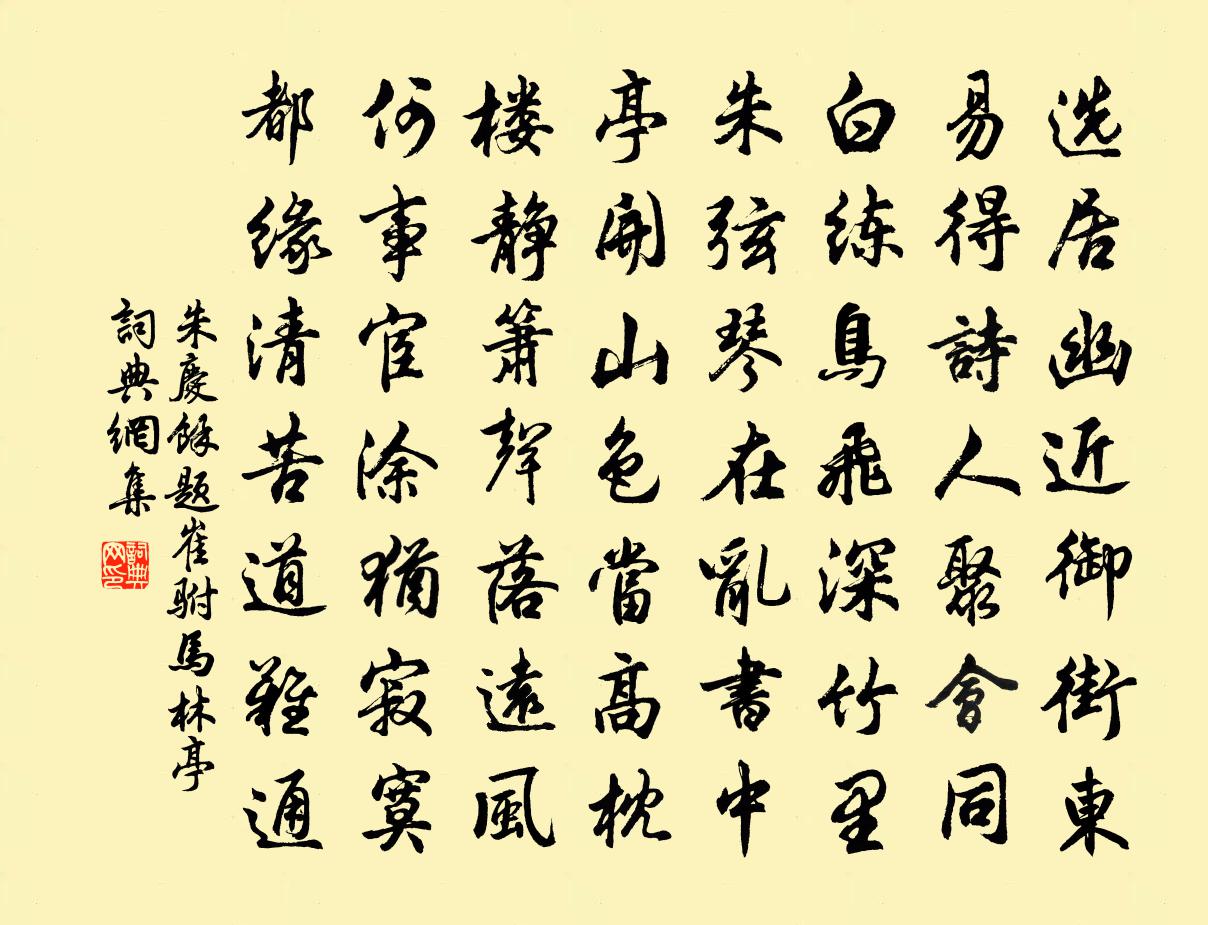 选居幽近御街東
易得詩人聚會同
白练鳥飛深竹里
朱弦琴在亂書中
亭開山色當高枕
楼静簫聲落遠風
何事宦涂猶寂寞
都緣清苦道難通
朱慶餘题崔駙馬林亭
詞典網集
詞典网印